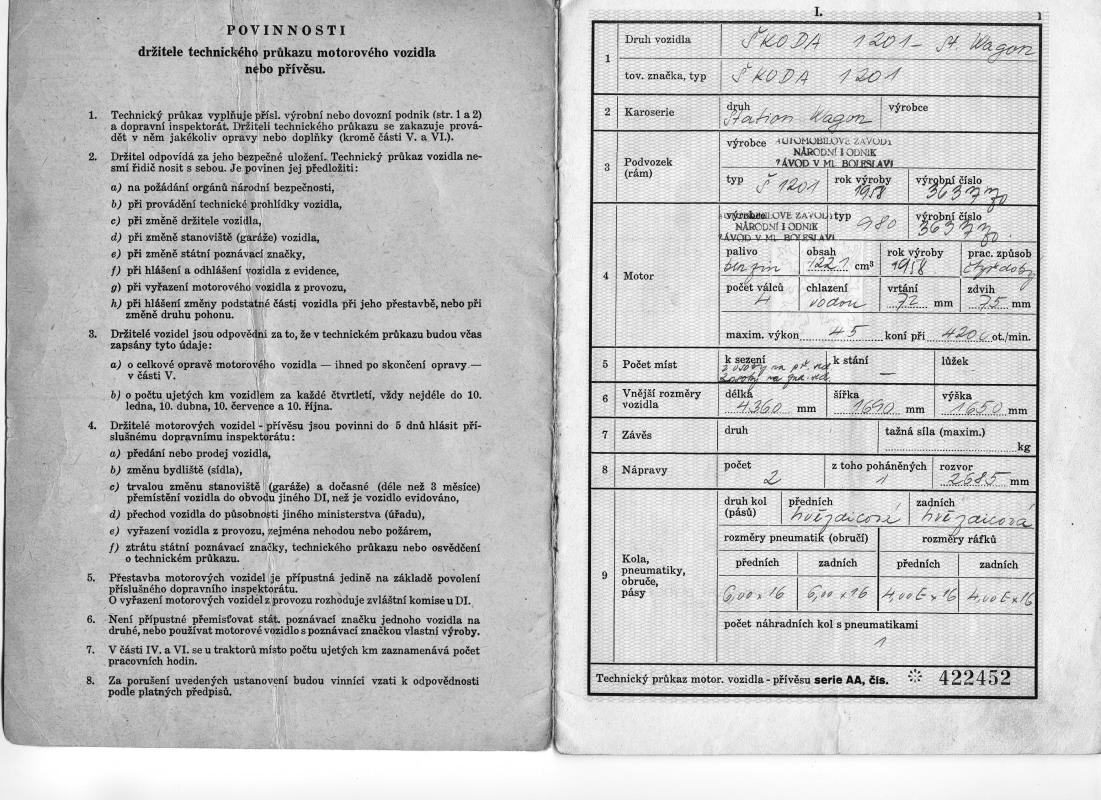 POVINNOSTI
držitele technického průkazu motorového vozidla
nebo přívěsu.
1. Technický průkaz vyplňuje přísl. výrobní nebo dovozní podnik (str. 1 a 2)
a dopravní inspektorát. Držiteli technického průkazu se zakazuje prová-
dět v něm jakékoliv opravy nebo doplňky (kromě části V. a VI.).
2. Držitel odpovídá za jeho bezpečné uložení. Technický průkaz vozidla ne-
smí řidič nosit s sebou. Je povinen jej předložiti:
a) na požádání orgánů národní bezpečnosti,
b) při provádění technické prohlídky vozidla,
c) při změně držitele vozidla,
d) při změně stanoviště (garáže) vozidla,
e) při změně státní poznávací značky,
f) při hlášení a odhlášení vozidla z evidence,
g) při vyřazení motorového vozidla z provozu,
h) při hlášení změny podstatné části vozidla při jeho přestavbě, nebo při
změně druhu pohonu.
3. Držitelé vozidel jsou odpovědni za to, že v technickém průkazu budou včas
zapsány tyto údaje:
a) o celkové opravě motorového vozidla — ihned po skončení opravy —
v části V.
b) o počtu ujetých km vozidlem za každé čtvrtletí, vždy nejdéle do 10.
ledna, 10. dubna, 10. července a 10. října.
4. Držitelé motorových vozidel - přívěsu jsou povinni do 5 dnů hlásit pří-
slušnému dopravnímu inspektorátu:
a) předání nebo prodej vozidla,
b) změnu bydliště (sídla),
c) trvalou změnu stanoviště (garáže) a dočasné (déle než 3 měsíce)
přemístění vozidla do obvodu jiného DI, než je vozidlo evidováno,
d) přechod vozidla do působnosti jiného ministerstva (úřadu),
e) vyřazení vozidla z provozu, zejména nehodou nebo požárem,
f) ztrátu státní poznávací značky, technického průkazu nebo osvědčení
o technickém průkazu.
5. Přestavba motorových vozidel je přípustná jedině na základě povolení
příslušného dopravního inspektorátu.
O vyřazení motorových vozidel z provozu rozhoduje zvláštní komise u DI.
6. Není přípustné přemisťovat stát. poznávací značku jednoho vozidla na
druhé, nebo používat motorové vozidlo s poznávací značkou vlastní výroby.
7. V části IV. a VI. se u traktorů místo počtu ujetých km zaznamenává počet
pracovních hodin.
8. Za porušení uvedených ustanovení budou vinníci vzati k odpovědnosti
podle platných předpisů.
I.
1
1 Druh vozidla ŠKODA 1201 - St. Wagon
tov. značka, typ ŠKODA 1201
2 Karoserie druh Station Wagon výrobce
3 Podvozek (rám) výrobce AUTOMOBILOVÉ ZÁVODY
NÁRODNÍ PODNIK
ZÁVOD V ML. BOLESLAVI
typ Š 1201 rok výroby 1958 výrobní číslo
4 Motor výrobce AUTOMOBILOVÉ ZÁVODY
NÁRODNÍ PODNIK
ZÁVOD V ML. BOLESLAVI
typ 980 výrobní číslo
palivo benzin obsah 1221 cm³ rok výroby 1958 prac. způsob čtyřdobý
počet válců 4 chlazení vodou vrtání 72 mm zdvih 75 mm
maxim. výkon 45 koní při 4200 ot./min.
5 Počet míst k sezení 3 osoby na př. sed. k stání — lůžek
6 Vnější rozměry vozidla délka 4360 mm šířka 1690 mm výška 1650 mm
7 Závěs druh tažná síla (maxim.) kg
8 Nápravy počet 2 z toho poháněných 1 rozvor 2685 mm
9 Kola, pneumatiky, obruče, pásy
druh kol (pásů) předních hvězdicová zadních hvězdicová
rozměry pneumatik (obručí) rozměry ráfků
předních zadních předních zadních
6,00 x 16 6,00 x 16 4,00E x 16 4,00E x 16
počet náhradních kol s pneumatikami
1
Technický průkaz motor. vozidla - přívěsu serie AA, čís. 422452